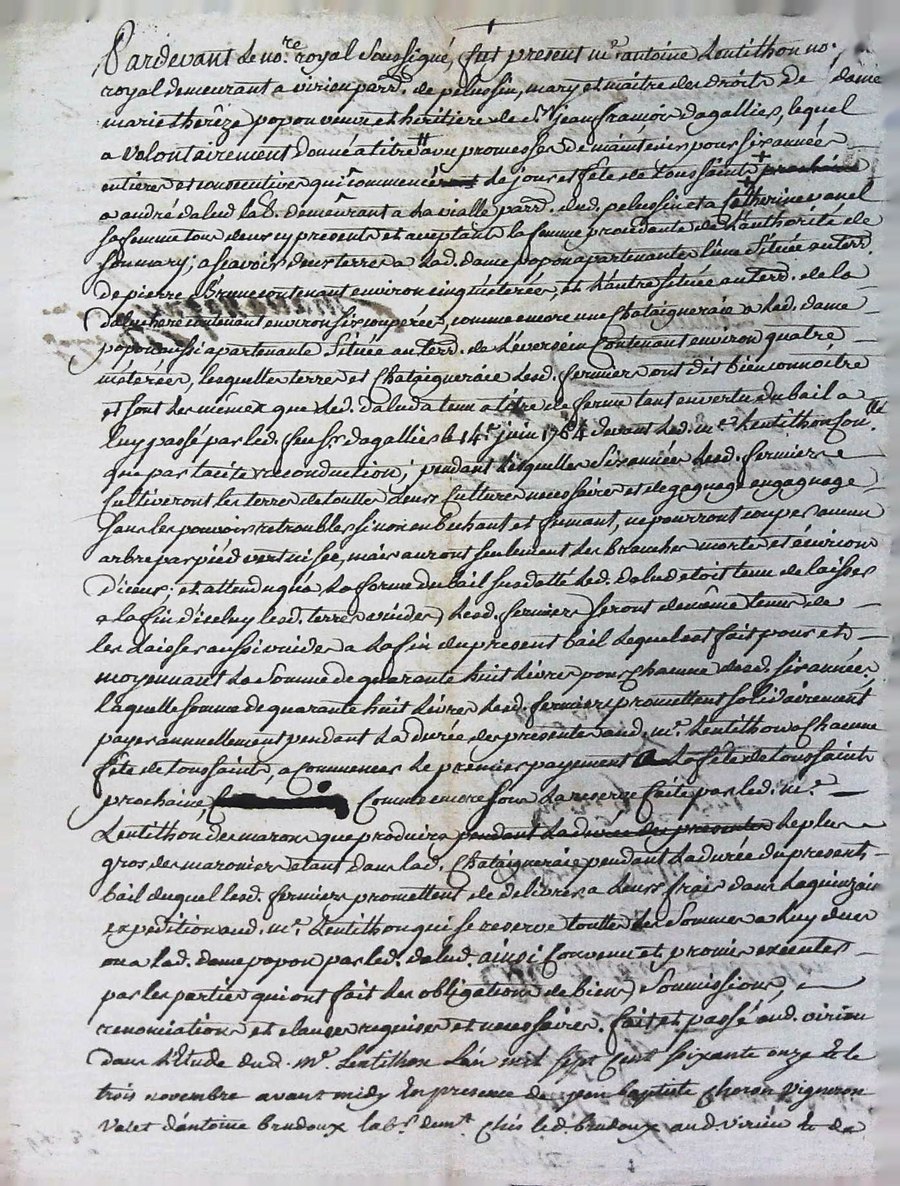 Pardevant le no.re royal soussigné, fut present m.e antoine Lentithon no.
royal demeurant a virieu parr. de pelussin, mary et maître des droits de dame
marie thérèze popon veuve et héritiere de s.r jean françois dagallies, lequel
a volontairement donné a titre avec promesses de maintenir pour six années
entieres et consecutives qui commencé le jour et fête de toussaints prochaine
a andré dalud lab. demeurant a la vialle parr. dud. pelussin et a Catherine vanel
sa femme tous deux cy presents et acceptants la femme procedante de l'authorité de
son mary; a scavoir deux terres a lad. dame popon apartenantes l'une située au terr.
de pierre Brune contenant environ cinq meterées, et l'autre située au terr. de la
contenant environ six couperées, comme encore une Chataigneraie a lad. dame
popon aussi apartenante située au terr. de Leversein contenant environ quatre
meterées, lesquelles terres et Chataigneraie lesd. fermiers ont dit bien connoitre
et sont les mêmes que led. dalud a tenu a titre de ferme tant en vertu du bail a
luy passé par led. feu s.r dagallies le 14.e juin 1764 devant led. m.e Lentithon
que par tacite reconduction; pendant lesquelles six années lesd. fermiers
cultiveront les terres de toutes leurs cultures necessaires et de gagnage en gagnage
sans les pouvoir retroubles sinon en bechant et fumant, ne pourront couper aucun
arbre par pied vert ni sec, mais auront seulement les branches mortes et
d'iceux; et attendu que la forme du bail susdatté led. dalud etoit tenu de laisser
a la fin d'iceluy lesd. terres vuides, lesd. fermiers seront de même tenus de
les laisser aussi vuides a la fin du present bail lequel est fait pour et
moyennant la somme de quarante huit livres pour chacune desd. six années,
laquelle somme de quarante huit livres lesd. fermiers promettent solidairement
payer annuellement pendant la durée des presentes aud. m.e Lentithon a Chacune
fête de toussaints, a commencer le premier payement a la fête de toussaints
prochaine, Comme encore sous la reserve faite par led. m.e
Lentithon des marons que produira pendant la durée des presentes le plus
gros des maroniers etant dans lad. Chataigneraie pendant la durée du present
bail duquel lesd. fermiers promettent de delivrer a leurs frais dans la quinzaine
expedition aud. m.e Lentithon qui se reserve touttes les sommes a luy dues
ou a lad. dame popon par led. dalud. ainsi convenu et promis executer
par les parties qui ont fait les obligations de biens, soumissions,
renonciations et clauses requises et necessaires. fait et passé aud. virieu
dans l'Etude dud. m.e Lentithon L'an mil sept cent soixante onze & le
trois novembre avant midy En presence de jean baptiste Choron vigneron
valet d'antoine brudoux lab.r dem.t chés led. brudoux aud. virieu & de